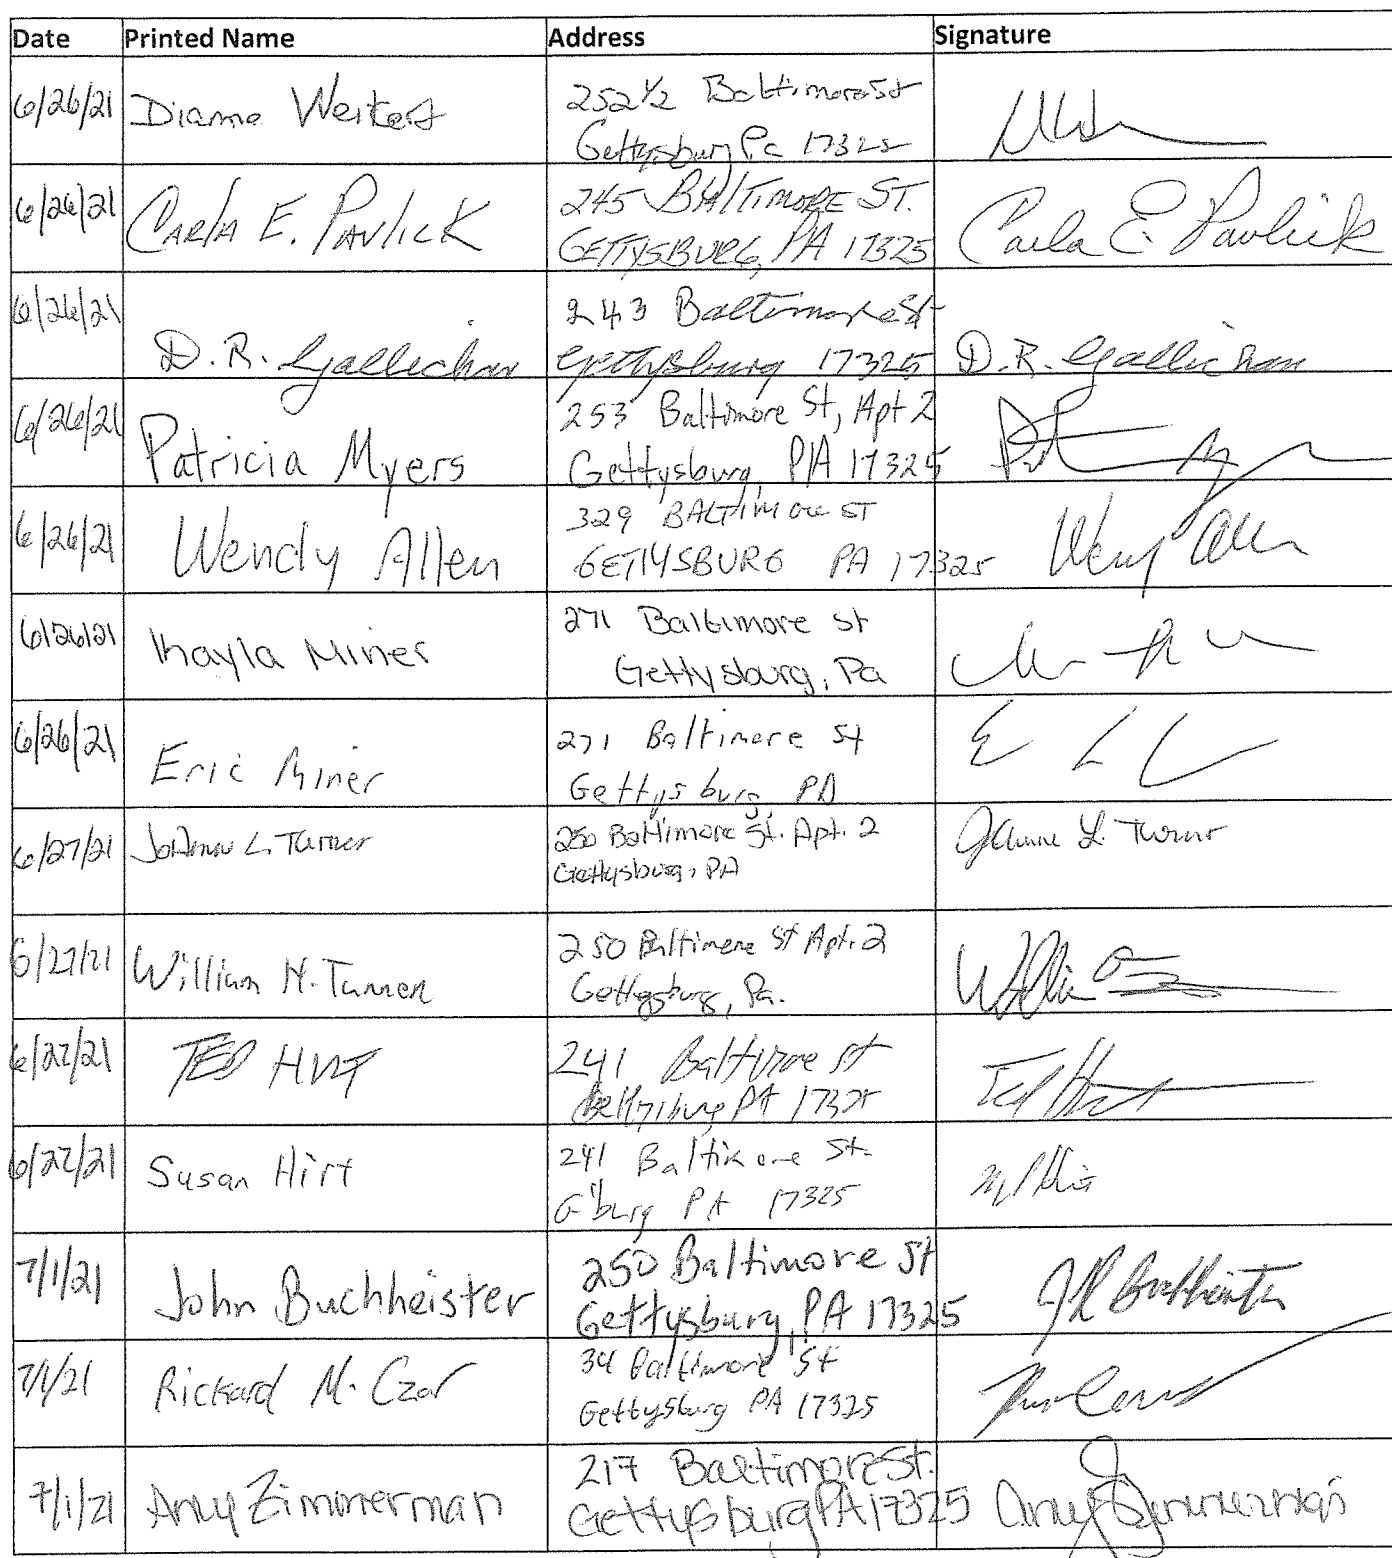 Date Printed Name Address Signature
6/26/21 Dianne Weikert 252 1/2 Baltimore St
Gettysburg Pa 17325
6/26/21 CARLA E. PAVLICK 245 BALTIMORE ST. Carla E. Pavlick
GETTYSBURG, PA 17325
6/26/21 243 Baltimore St
D.R. Gallichan Gettysburg 17325 D.R. Gallichan
6/26/21 Patricia Myers 253 Baltimore St, Apt 2
Gettysburg, PA 17325
6/26/21 Wendy Allen 329 BALTIMORE ST Wendy Allen
GETTYSBURG PA 17325
6/26/21 Khayla Miner 271 Baltimore St
Gettysburg, Pa
6/26/21 Eric Miner 271 Baltimore St
Gettysburg, PA
6/27/21 JoAnne L. Turner 250 Baltimore St. Apt. 2 JoAnne L. Turner
Gettysburg, PA
6/27/21 William H. Turner 250 Baltimore St Apt. 2
Gettysburg, Pa.
6/27/21 TED HIRT 241 Baltimore St Ted Hirt
Gettysburg PA 17325
6/27/21 Susan Hirt 241 Baltimore St.
G'burg PA 17325
7/1/21 John Buchheister 250 Baltimore St
Gettysburg, PA 17325
7/1/21 Rickard M. Czar 34 Baltimore St
Gettysburg PA 17325
7/1/21 Amy Zimmerman 217 Baltimore St. Amy Zimmerman
Gettysburg PA 17325